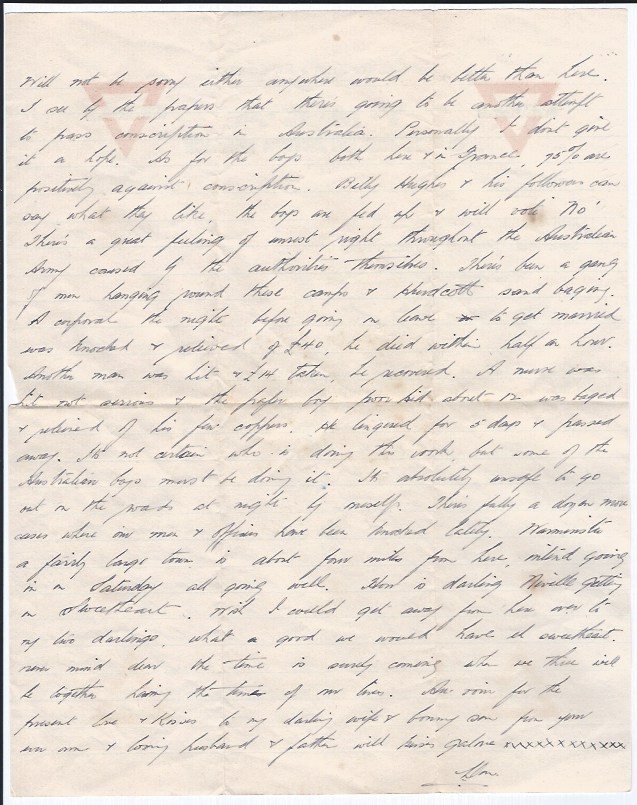 Will not be sorry either anywhere would be better than here.
I see by the papers that there's going to be another attempt
to pass conscription in Australia. Personally I dont give
it a hope. As for the boys both here & in France, 75% are
positively against conscription. Billy Hughes & his followers can
say what they like, the boys are fed up & will vote 'No'
There's a great feeling of unrest right throughout the Australian
Army caused by the authorities themselves. There's been a gang
of men hanging round these camps & Hurdcott sand baging.
A corporal the night before going on leave to get married
was knocked & relieved of £40, he died within half an hour.
Another man was hit & £14 taken, he recovered. A nurse was
hit not serious & the paper boy poor kid about 12 was baged
& relieved of his few coppers, He lingered for 5 days & passed
away. Its not certain who is doing this work, but some of the
Australian boys must be doing it. Its absolutely unsafe to go
out on the roads at night by meself. There's fully a dozen more
cases where our men & officers have been knocked lately. Warminster
a fairly large town is about four miles from here, intend going
in on Saturday all going well. How is darling Neville getting
on Sweetheart. Wish I could get away from here over to
my two darlings, what a good we would have eh sweetheart.
never mind dear the time is surely coming when we three will
be together having the time of our lives. Au revoir for the
present love & Kisses to my darling wife & bonny son from your
own & loving husband & father with kisses galore xxxxxxxxxxxxx